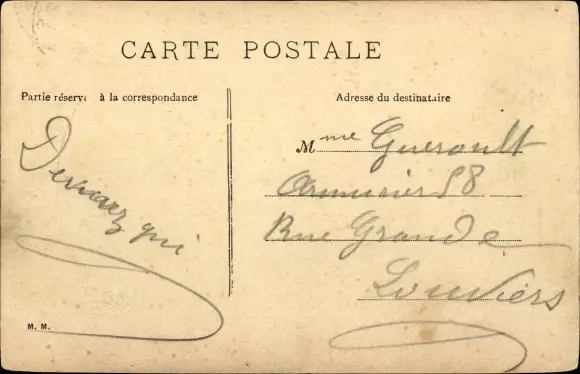 CARTE POSTALE
Partie réservé à la correspondance
Adresse du destinataire
Devinez qui
Mme Gueroult
Armurier 58
Rue Grande
Louviers
M. M.